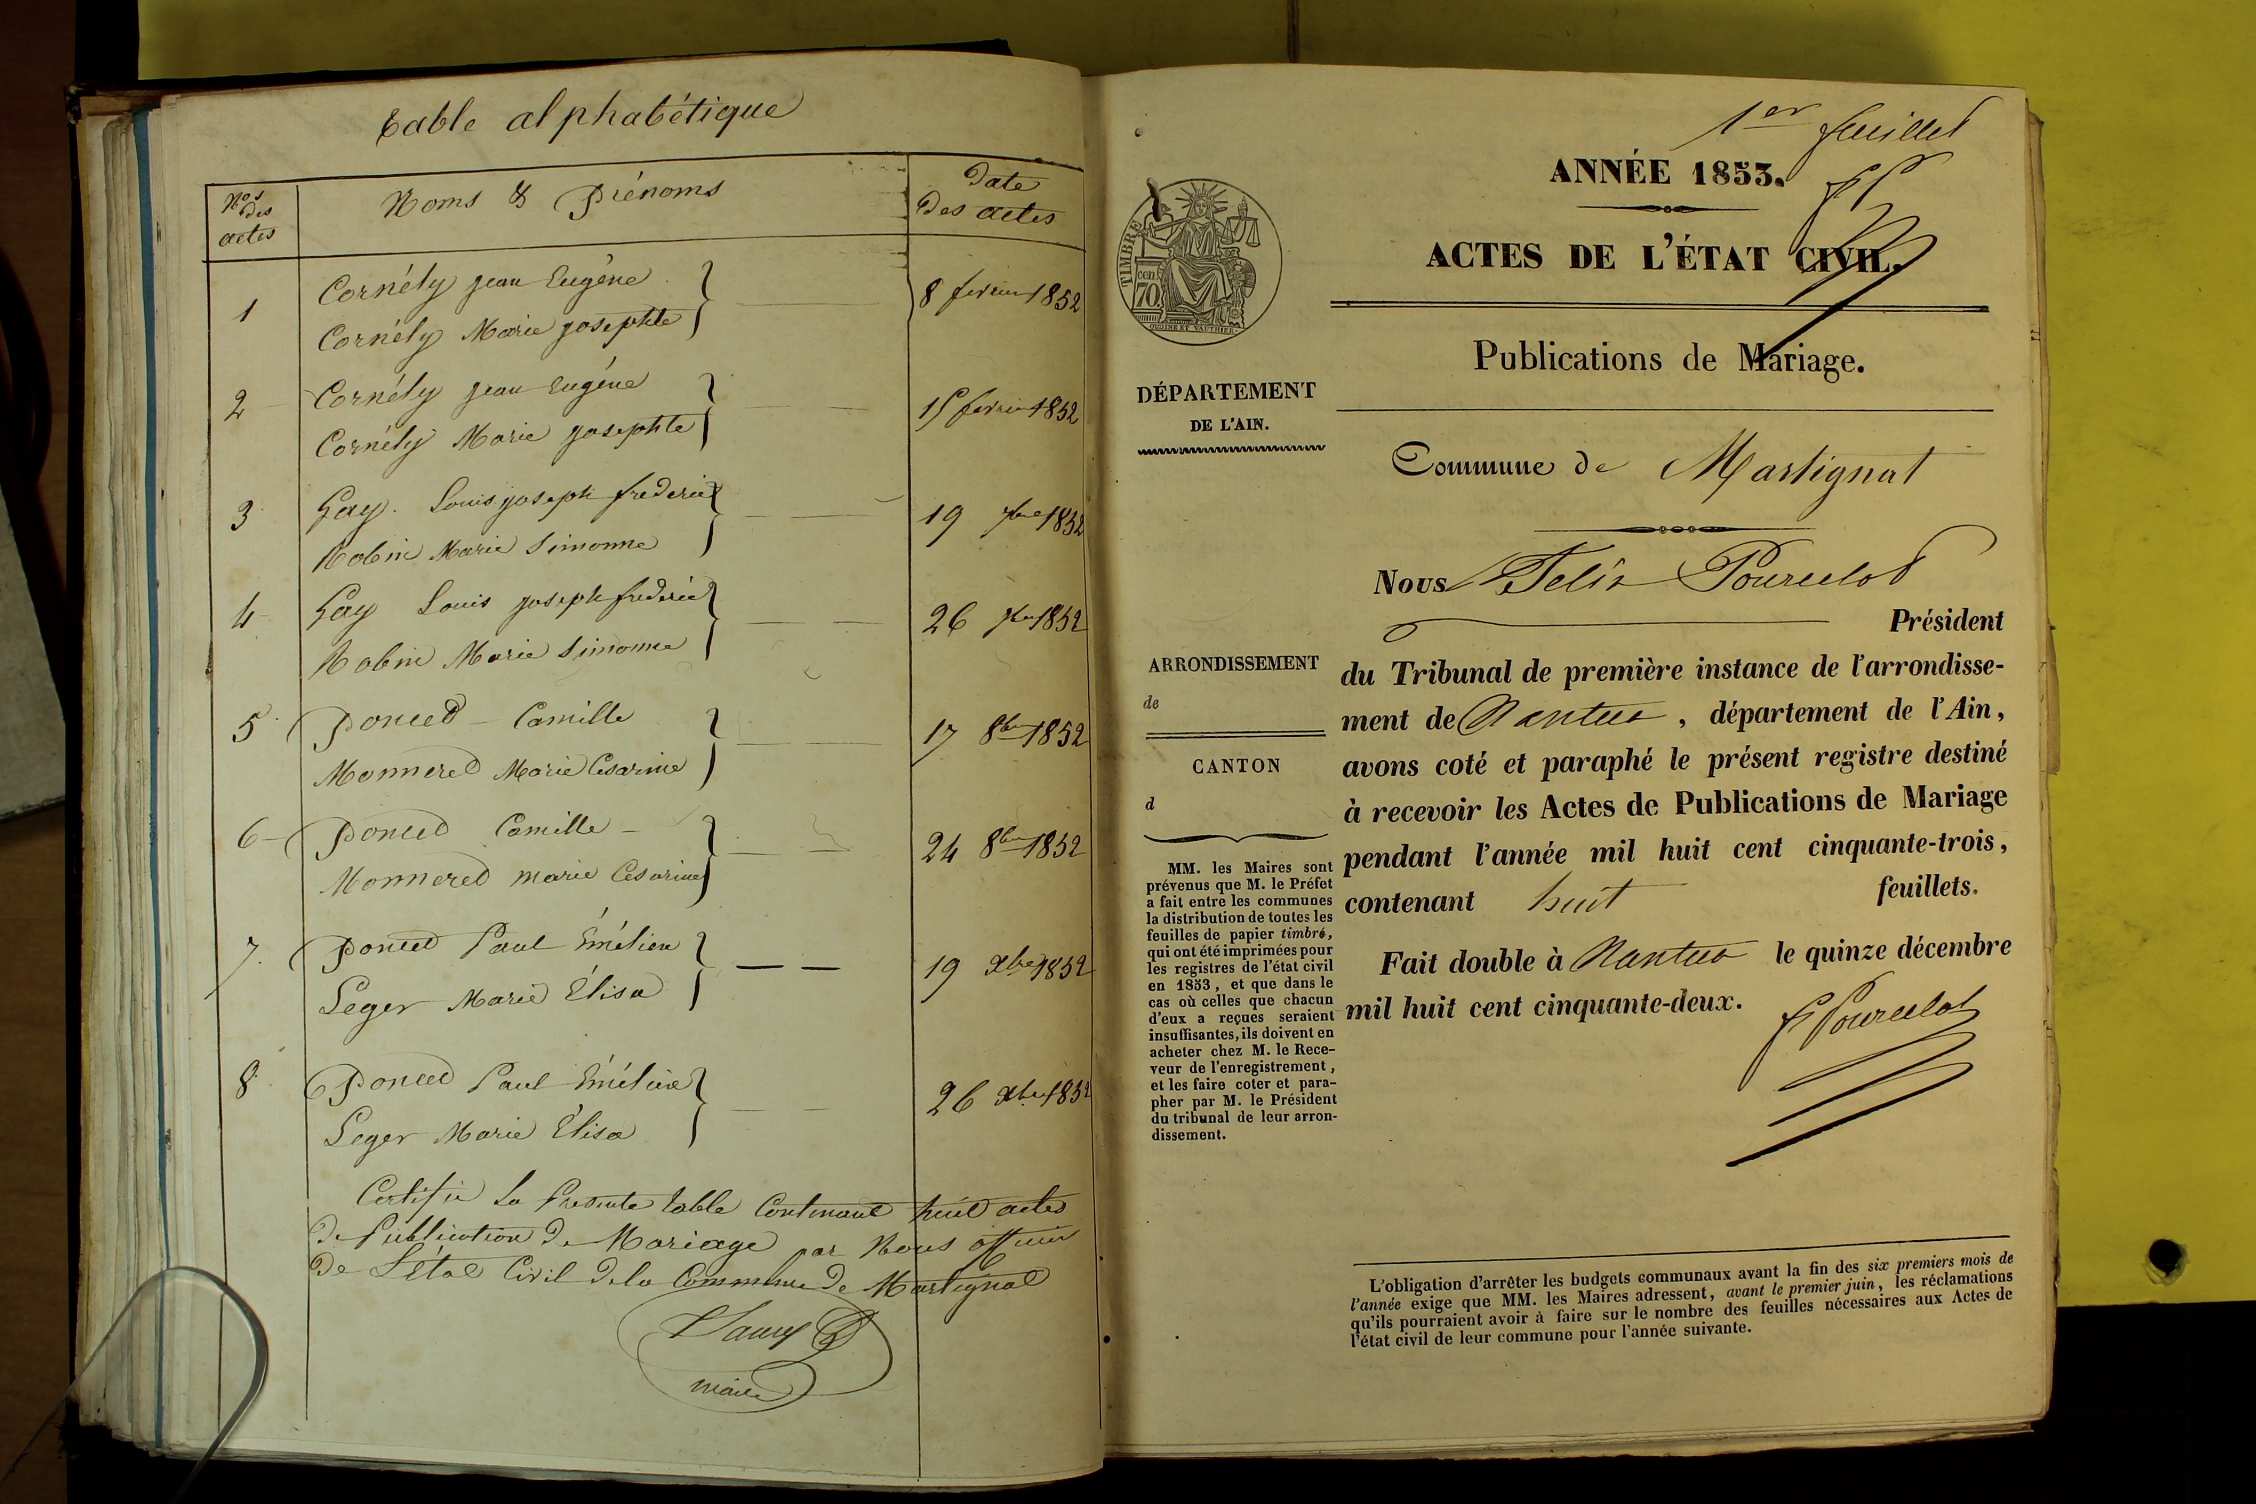 Table alphabétique
Nos des actes
Noms & Prénoms
Date Des actes
1
Cornély jean Eugène
8 fevrier 1852
Cornély Marie josephte
2
Cornély jean Eugène
15 fevrier 1852
Cornély Marie josephte
3
Gay Louis joseph frederic
19 7bre 1852
Robin Marie Simonne
4
Gay Louis joseph frederic
26 7bre 1852
Robin Marie Simonne
5
Poncet Camille
17 8bre 1852
Monneret Marie Cesarine
6
Poncet Camille
24 8bre 1852
Monneret marie Cesarine
7
Poncet Paul Émélien
19 Xbre 1852
Leger Marie Élisa
8
Poncet Paul Émélien
26 Xbre 1852
Leger Marie Élisa
Certifie La Presente table Contenant huit actes
De Publication De Mariage par Nous officier
De L'état Civil De la Commune De Martignat
maire
1er feuillet
ANNÉE 1853.
FP
ACTES DE L'ÉTAT CIVIL.
TIMBRE
cen. 70
OUDINÉ ET VAUTHIER.
Publications de Mariage.
DÉPARTEMENT
DE L'AIN.
Commune de Martignat
Nous Félix Pourcelot
Président
ARRONDISSEMENT
de
CANTON
d
du Tribunal de première instance de l'arrondisse-
ment de Nantua, département de l'Ain,
avons coté et paraphé le présent registre destiné
à recevoir les Actes de Publications de Mariage
pendant l'année mil huit cent cinquante-trois,
contenant huit feuillets.
Fait double à Nantua le quinze décembre
mil huit cent cinquante-deux.
F Pourcelot
MM. les Maires sont
prévenus que M. le Préfet
a fait entre les communes
la distribution de toutes les
feuilles de papier timbré,
qui ont été imprimées pour
les registres de l'état civil
en 1853, et que dans le
cas où celles que chacun
d'eux a reçues seraient
insuffisantes, ils doivent en
acheter chez M. le Rece-
veur de l'enregistrement,
et les faire coter et para-
pher par M. le Président
du tribunal de leur arron-
dissement.
L'obligation d'arrêter les budgets communaux avant la fin des six premiers mois de
l'année exige que MM. les Maires adressent, avant le premier juin, les réclamations
qu'ils pourraient avoir à faire sur le nombre des feuilles nécessaires aux Actes de
l'état civil de leur commune pour l'année suivante.